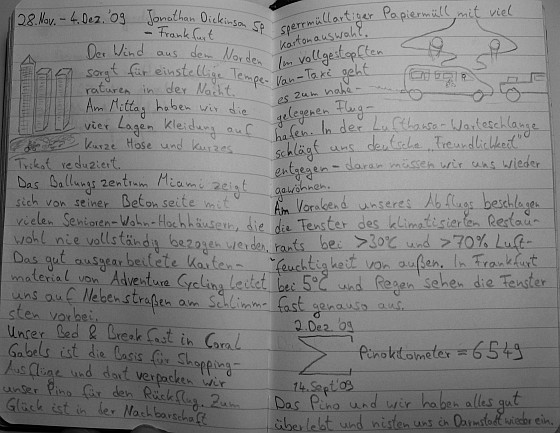 28. Nov. - 4. Dez. '09 Jonathan Dickinson SP
- Frankfurt
Der Wind aus dem Norden
sorgt für einstellige Tempe-
raturen in der Nacht.
Am Mittag haben wir die
vier Lagen Kleidung auf
kurze Hose und kurzes
Trikot reduziert.
Das Ballungszentrum Miami zeigt
sich von seiner Betonseite mit
vielen Senioren-Wohn-Hochhäusern, die
wohl nie vollständig bezogen werden.
Das gut ausgearbeitete Karten-
material von Adventure Cycling leitet
uns auf Nebenstraßen am Schlimm-
sten vorbei.
Unser Bed & Breakfast in Coral
Gabels ist die Basis für Shopping-
Ausflüge und dort verpacken wir
unser Pino für den Rückflug. Zum
Glück ist in der Nachbarschaft
sperrmüllartiger Papiermüll mit viel
Kartonauswahl.
Im vollgestopften
Van-Taxi geht
es zum nahe-
gelegenen Flug-
hafen. In der Lufthansa-Warteschlange
schlägt uns deutsche "Freundlichkeit"
entgegen - daran müssen wir uns wieder
gewöhnen.
Am Vorabend unseres Abflugs beschlagen
die Fenster des klimatisierten Restau-
rants bei >30°C und >70% Luft-
feuchtigkeit von außen. In Frankfurt
bei 5°C und Regen sehen die Fenster
fast genauso aus.
2. Dez. '09
Pinokilometer = 6549
14. Sept. '09
Das Pino und wir haben alles gut
überlebt und nisten uns in Darmstadt wieder ein.